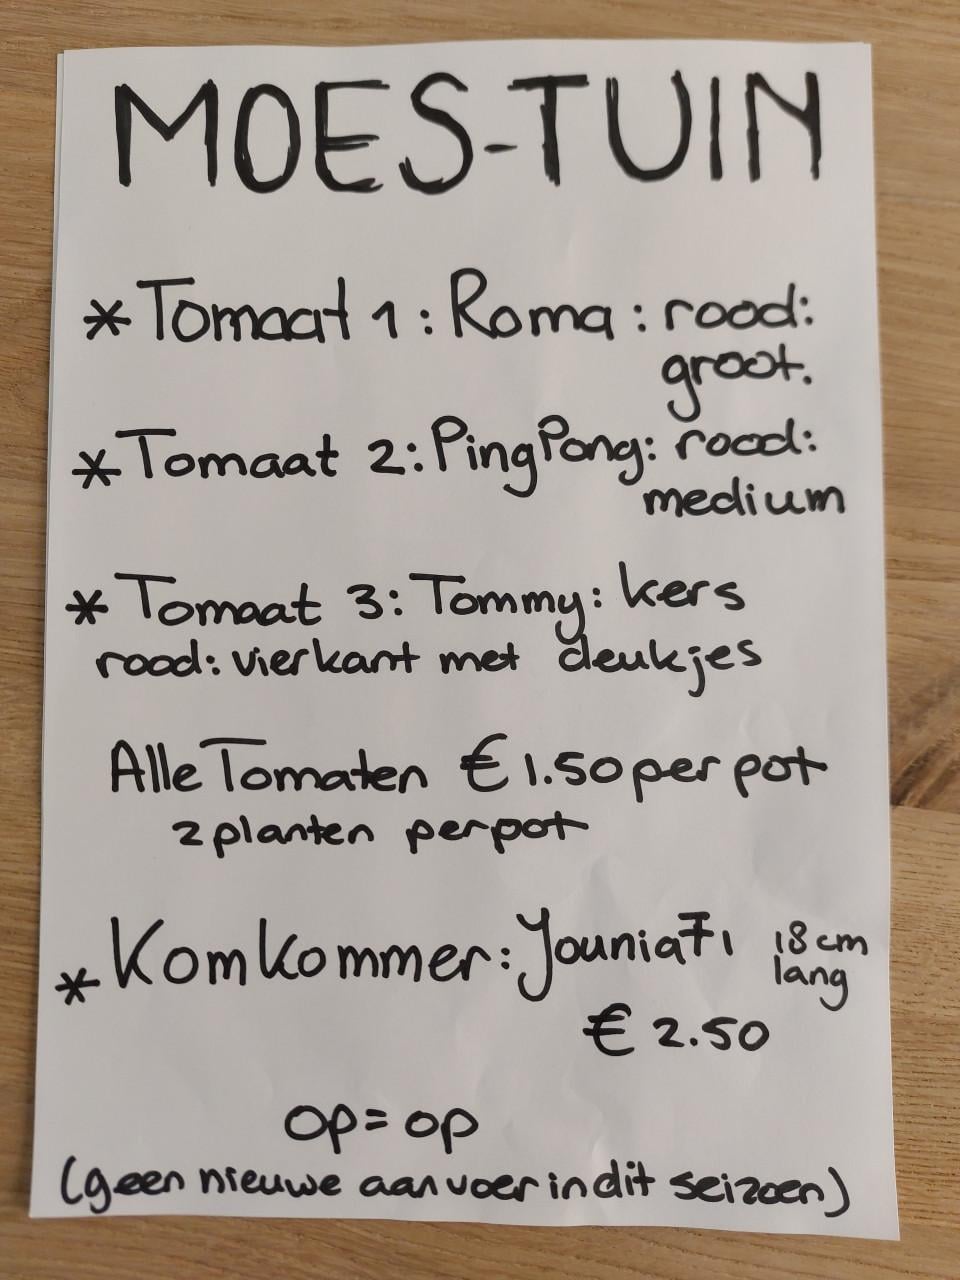 MOES-TUIN
* Tomaat 1: Roma: rood:
groot.
* Tomaat 2: PingPong: rood:
medium
* Tomaat 3: Tommy: kers
rood: vierkant met deukjes
Alle Tomaten € 1.50 per pot
2 planten per pot
* Komkommer: Younia F1 18 cm
lang
€ 2.50
op = op
(geen nieuwe aanvoer in dit seizoen)